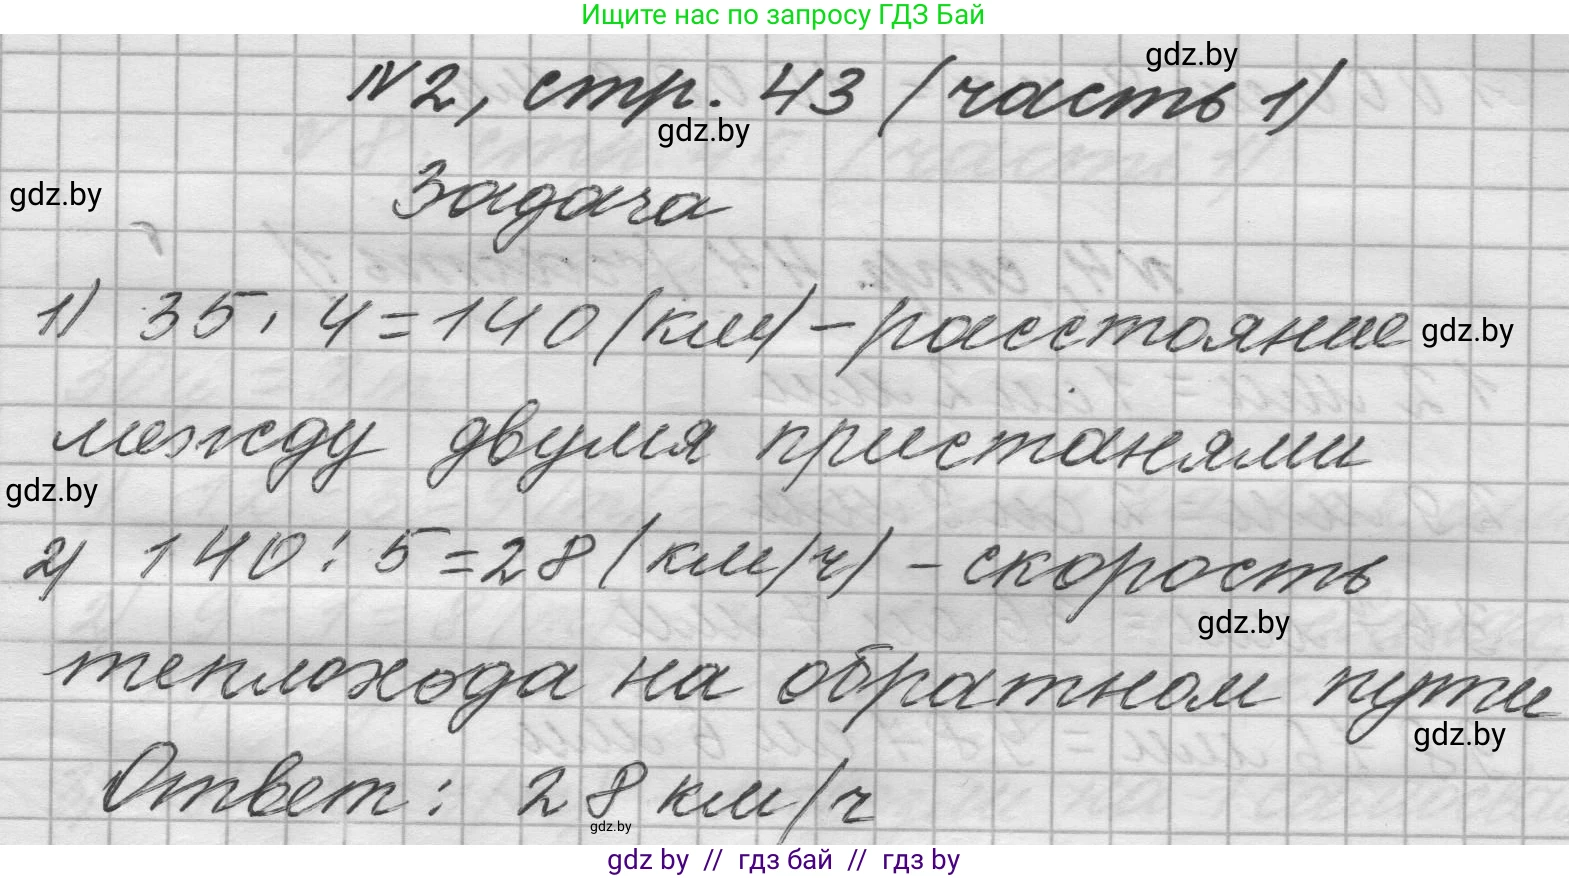 Ищите нас по запросу ГДЗ Бай
gdz.by
№2, стр. 43 (часть 1)
gdz.by
Задача
gdz.by
1) 35 · 4 = 140 (км) – расстояние
gdz.by
между двумя пристанями
gdz.by
2) 140 : 5 = 28 (км/ч) – скорость
gdz.by
теплохода на обратном пути
gdz.by
Ответ: 28 км/ч
gdz.by
gdz by // гдз бай // гдз by